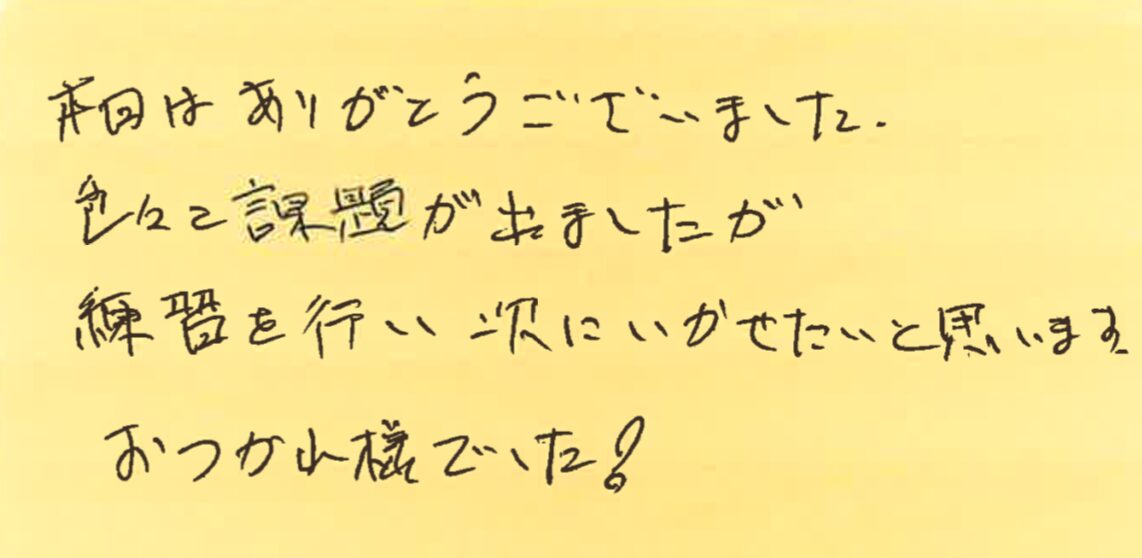 本日はありがとうございました.
色々と課題が出ましたが
練習を行い次にいかせたいと思います
おつかれ様でした!